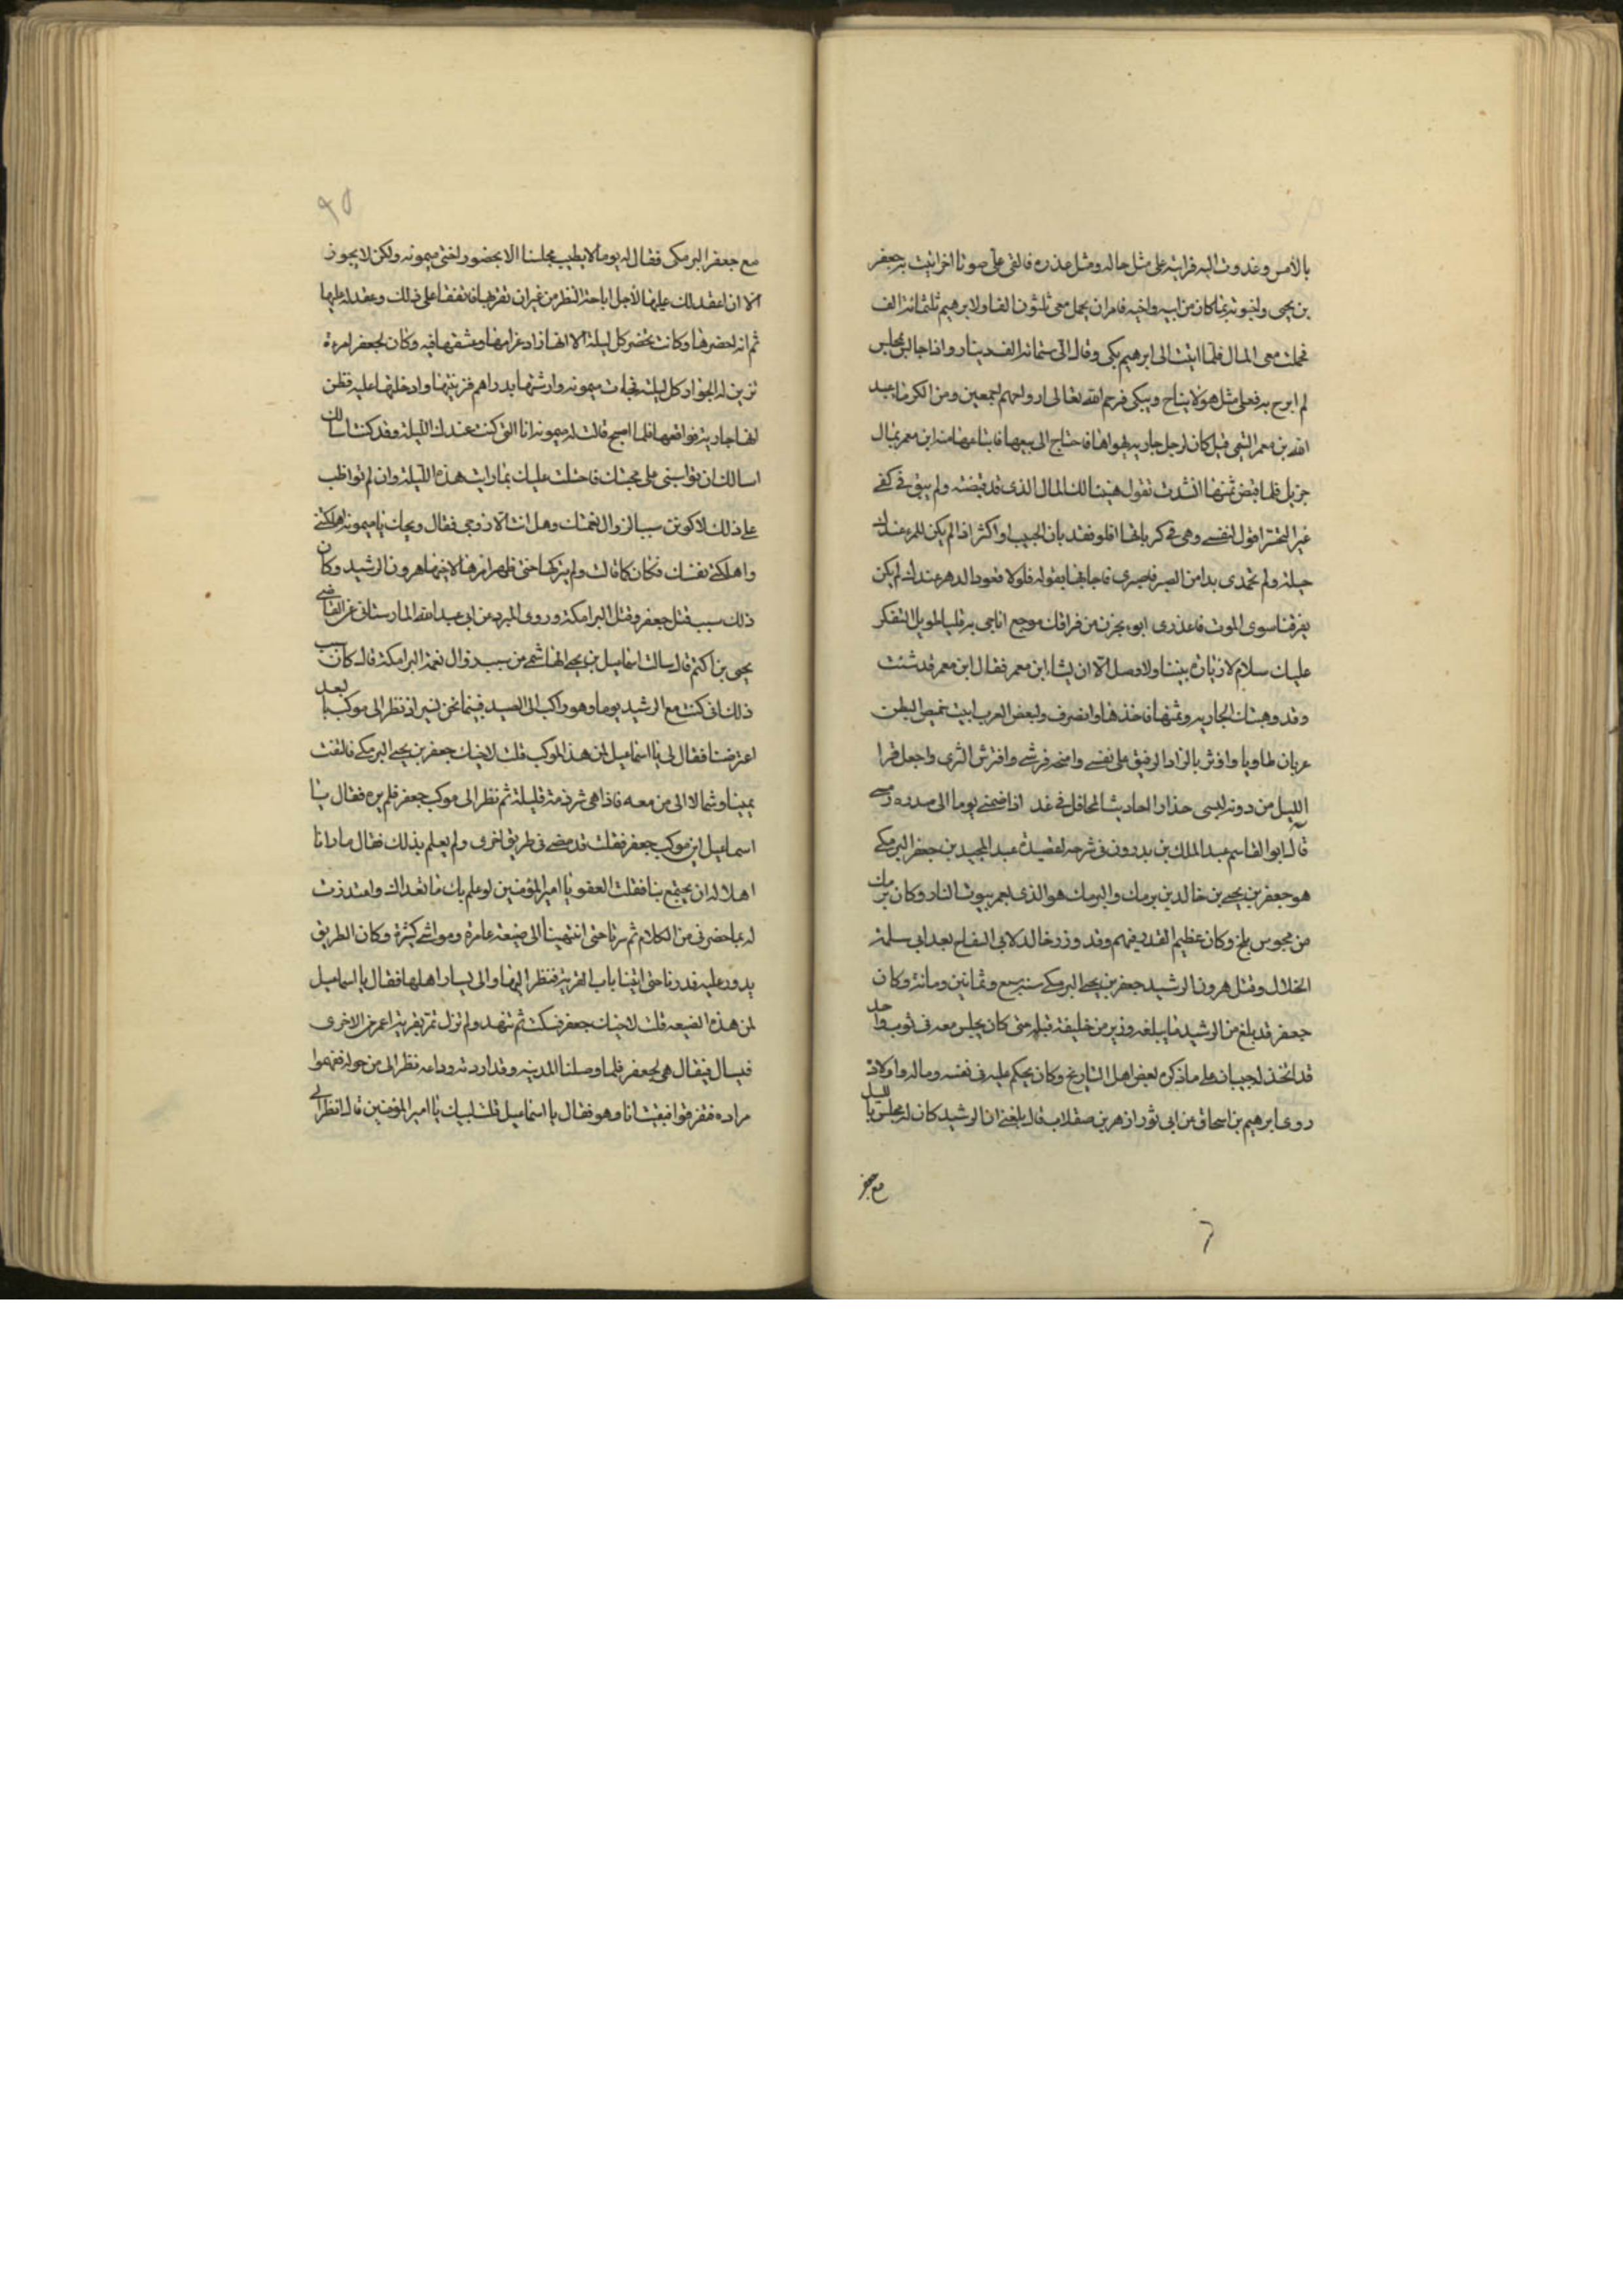 بالأمس وغدوت اليه فرايته على مثل حاله ومثل عذره فالقى على صوتا اخر اتيت به جعفر
بن يحيى واخبرته بما كان من ابيه واخيه فامر ان يحمل معى ثلثون الفا ولابرهيم ثلثمائة الف
فحملت معى المال فلما اتيت الى ابرهيم بكى وقال الى ستمائة الف دينار وانا جالس بمجلس
لم ابرح به فعلى مثل هولا يناح ويبكى فرحم الله تعالى ارواحهم اجمعين ومن الكرماء عبيد
الله بن معمر التيمى قيل كان لرجل جاريه يهواها فاحتاج الى بيعها فابتاعها منه ابن معمر بمال
جزيل فلما قبض ثمنها انشدت تقول هنيئا لك المال الذى قد قبضته ولم يبق فى كفى
غير التحسر اقول لنفسى وهى فى كرباتها اقلى فقد بان الحبيب او اكثرى اذا لم يكن للمرء عندك
حيلة ولم تجدى بدا من الصبر فاصبرى فاجابها بقوله فلولا قعود الدهر عندك لم يكن
يفرقنا سوى الموت فاعذرى ابوء بحزن من فراقك موجع اناجى به قلبا طويل التفكر
عليك سلام لا زيارة بيننا ولا وصل الا ان يشا ابن معمر فقال ابن معمر قد شئت
وقد وهبتك الجاريه وثمنها فاخذها وانصرف ولبعض العرب ابيت خميص البطن
عريان طاويا واوثر بالزاد الرفيق على نفسى وامنحه فرشى وافترش الثرى واجعل قرا
الليل من دونه لبسى حذار احاديث المحافل فى غد اذا ضمنى يوما الى صدره رمسى
قال ابو القاسم عبد الملك بن بدرون فى شرحه لقصيدة عبد المجيد بن جعفر البرمكى
هو جعفر بن يحيى بن خالد بن برمك والبرمك هو الذى يجمر بيوت النار وكان برمك
من مجوس بلخ وكان عظيم القدر فيهم وقد وزر خالد لابى السفاح بعد ابى سلمة
الخلال وقتل هرون الرشيد جعفر بن يحيى البرمكى سنة سبع وثمانين ومائة وكان
جعفر قد بلغ من الرشيد ما يبلغه وزير من خليفة قبله حتى كان يجلس معه فى ثوب واحد
قد اتخذ له جيبان على ما ذكره بعض اهل التاريخ وكان يحكم عليه فى نفسه وماله واولاده
روى ابرهيم بن اسحاق عن ابى ثور ازهر بن صقلاب قال بلغنى ان الرشيد كان له مجلس بالليل
مع جعفر
مع جعفر البرمكى فقال له يوما لا يطيب مجلسنا الا بحضور اختى ميمونه ولكن لا يجوز
الا ان اعقد لك عليها لأجل اباحة النظر من غير ان تقربها فاتفقا على ذلك وعقد له عليها
ثم انه احضرها وكانت تحضر كل ليلة الا انها زاد غرامها وعشقها فيه وكان لجعفر امرءة
تزين له الجوار كل ليلة فجاءت ميمونه وارشتها بدراهم فزينتها وادخلتها عليه فظن
انها جارية فواقعها فلما اصبح قالت له ميمونه انا التى كنت عندك الليلة وقد كنت اسالك
اسالك ان تواسينى على محبتك فاحتلت عليك بما رايت هذه الليلة وان لم تواظب
على ذلك لاكونن سببا لزوال نعمتك وهل انت الا زوجى فقال ويحك يا ميمونه اهلكتى
واهلكتى نفسك فكان كما قالت ولم يتركها حتى ظهر امرها لاخيها هرون الرشيد وكان
ذلك سبب قتل جعفر وقتل البرامكة وروى المبرد عن ابى عبد الله المارستانى عن القاضى
يحيى بن اكثم قال سالت اسماعيل بن يحيى الهاشمى عن سبب زوال نعمة البرامكة قال كان سبب
ذلك انى كنت مع الرشيد يوما وهو راكب الى الصيد فبينما نحن نسير اذ نظر الى موكب بالبعد
اعترضنا فقال لى يا اسماعيل لمن هذا الموكب قلت لاخيك جعفر بن يحيى البرمكى فالتفت
يمينا وشمالا الى من معه فاذا هى شرذمة قليلة ثم نظر الى موكب جعفر فلم يره فقال يا
اسماعيل اين موكب جعفر فقلت قد مضى فى طريق اخرى ولم يعلم بذلك فقال ما رانا
اهلا له ان يجتمع بنا فقلت العفو يا امير المؤمنين لو علم بك ما تعداك واعتذرت
له بما حضرنى من الكلام ثم سرنا حتى انتهينا الى ضيعة عامرة ومواشى كثيرة وكان الطريق
يدور عليه فدرنا حتى اتينا باب القرية فنظر اليها والى يسار اهلها فقال يا اسماعيل
لمن هذه الضيعه قلت لاخيك جعفر فسكت ثم تنهد ولم نزل نمر بقرية اعمر من الاخرى
فيسال فيقال هى لجعفر فلما وصلنا المدينه وقد اردت وداعه نظر الى من حوله ففهموا
مراده فتفرقوا فبقيت انا وهو فقال يا اسماعيل قلت لبيك يا امير المؤمنين قال انظر الى